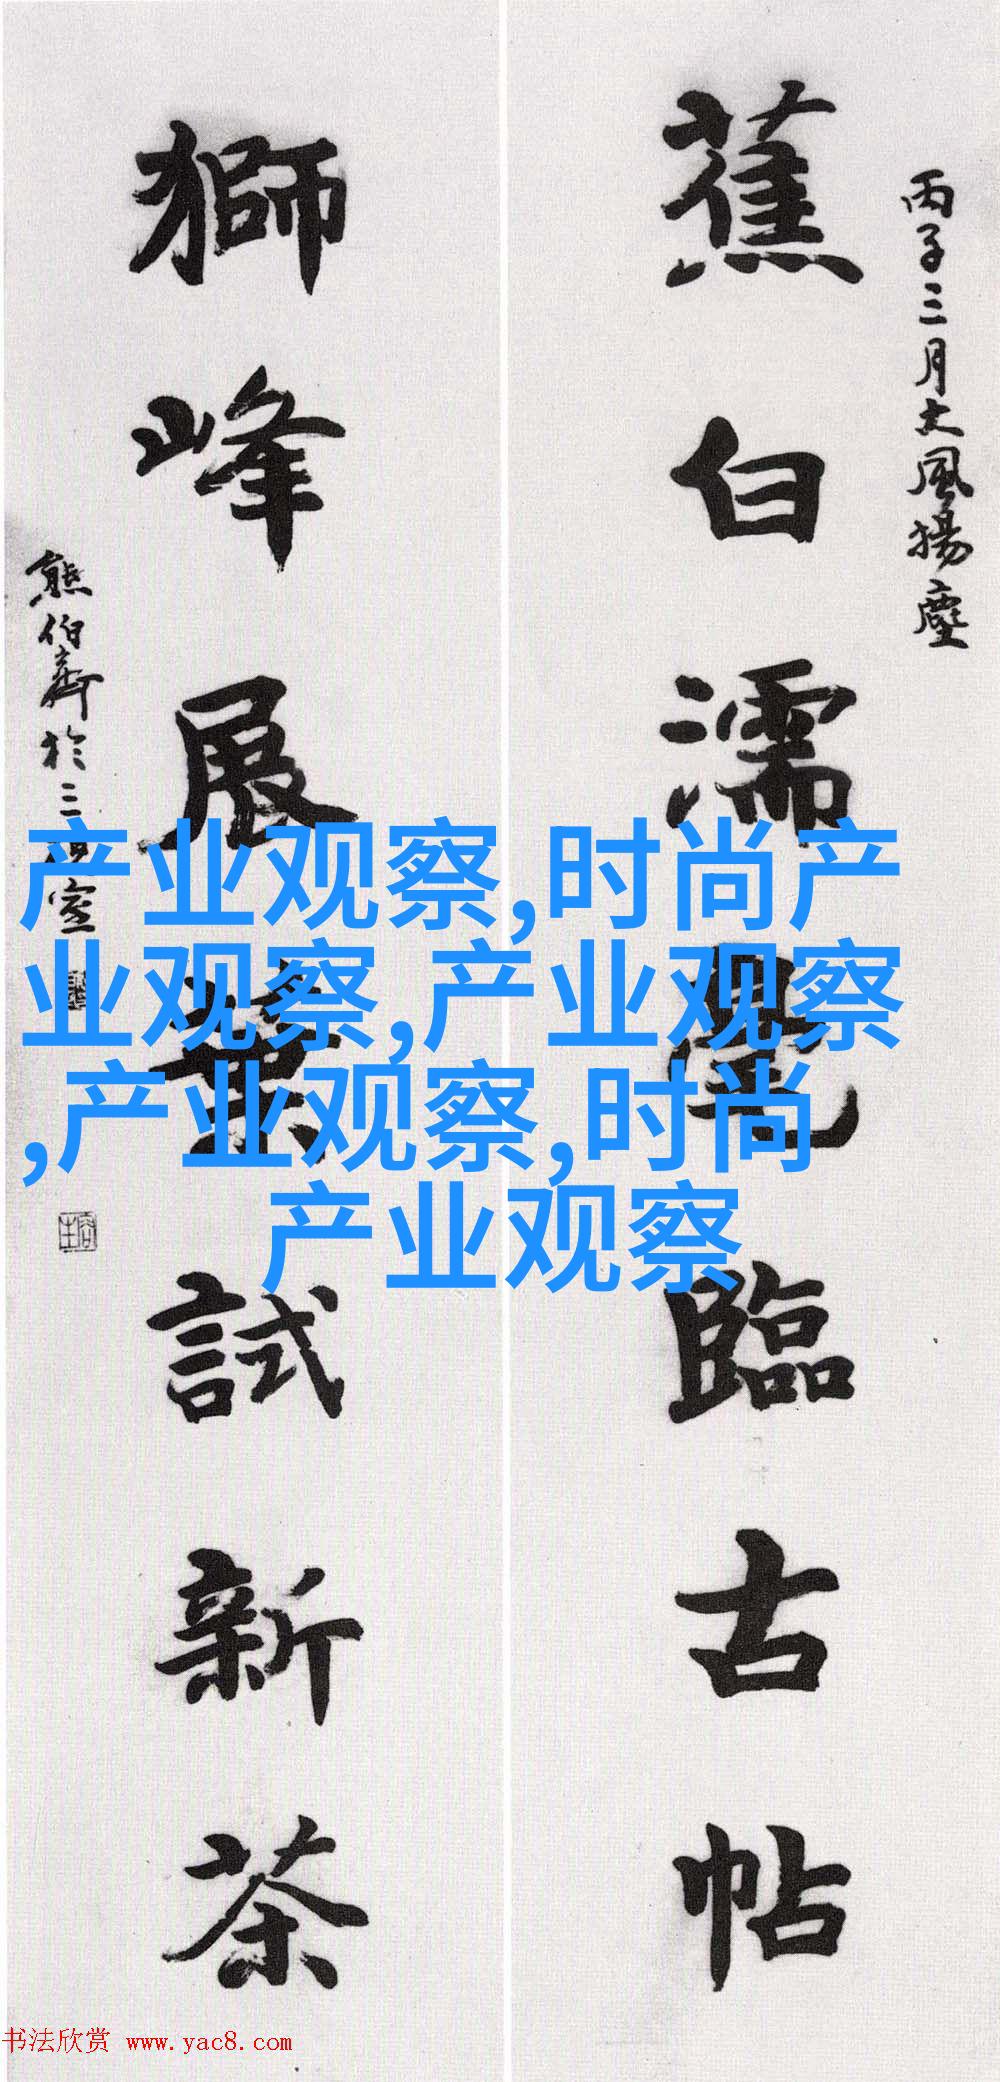 丙子三月大風揚塵
蕉白濡墨臨古帖
獅峰展葉試新茶
熊伯齊於三
室
产业观察,时尚产
业观察,产业观察
,产业观察,时尚
产业观察
书法欣赏 www.yac8.com